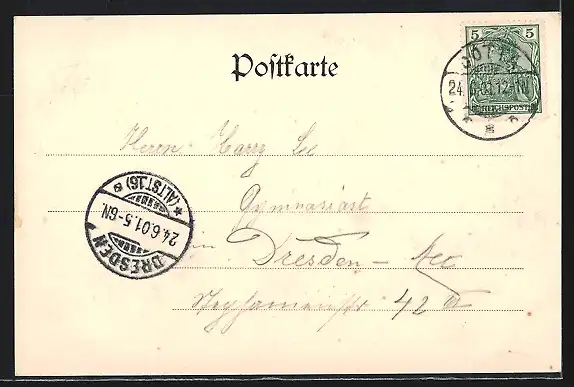 5 5
REICHSPOST
24.6.01.12-1N
Postkarte
Herrn Harry Lee
Gymnasiast
in Dresden -
42 III
DRESDEN
24.6.01.5-6N.
*(ALTST.16) a